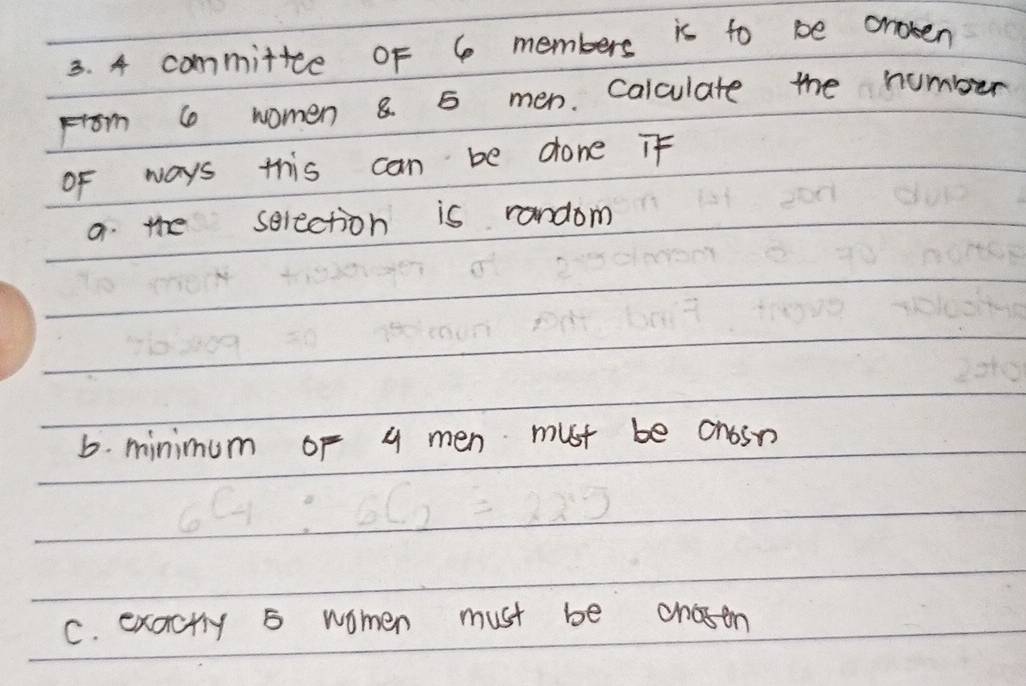 3. A committee OF 6 members is to be chosen
From 6 women & 5 men. Calculate the number
OF ways this can be done IF
a. the selection is random
b. minimum OF 4 men must be chosn
6C4 : 6C2 = 225
c. exactly 5 women must be chosen